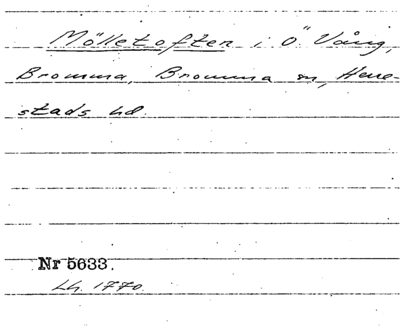 Mölletoften i Ö Vång,
Bromma, Bromma sn, Herre-
stads hd.
Nr 5633.
Lh. 1770.